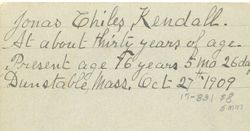 Jonas Chiles Kendall.
At about thirty years of age.
Present age 76 years 5 mo 26 da
Dunstable Mass. Oct- 27th 1909
17-831 $8